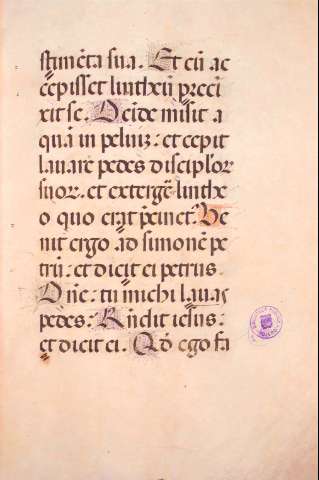 stimēta sua. Et cū ac
cepisset lintheū preci
xit se. Deīde misit a
quā in peluiʒ: et cepit
lauare pedes discipłoꝝ
suoꝝ. et extergē linthe
o quo erat p̄cinct⁹. Ve
nit ergo ad simonē pe
trū: et dicit ei petrus.
Dn̄e: tu michi lauas
pedes: Rn̄dit iesus:
et dicit ei. Qđ ego fa